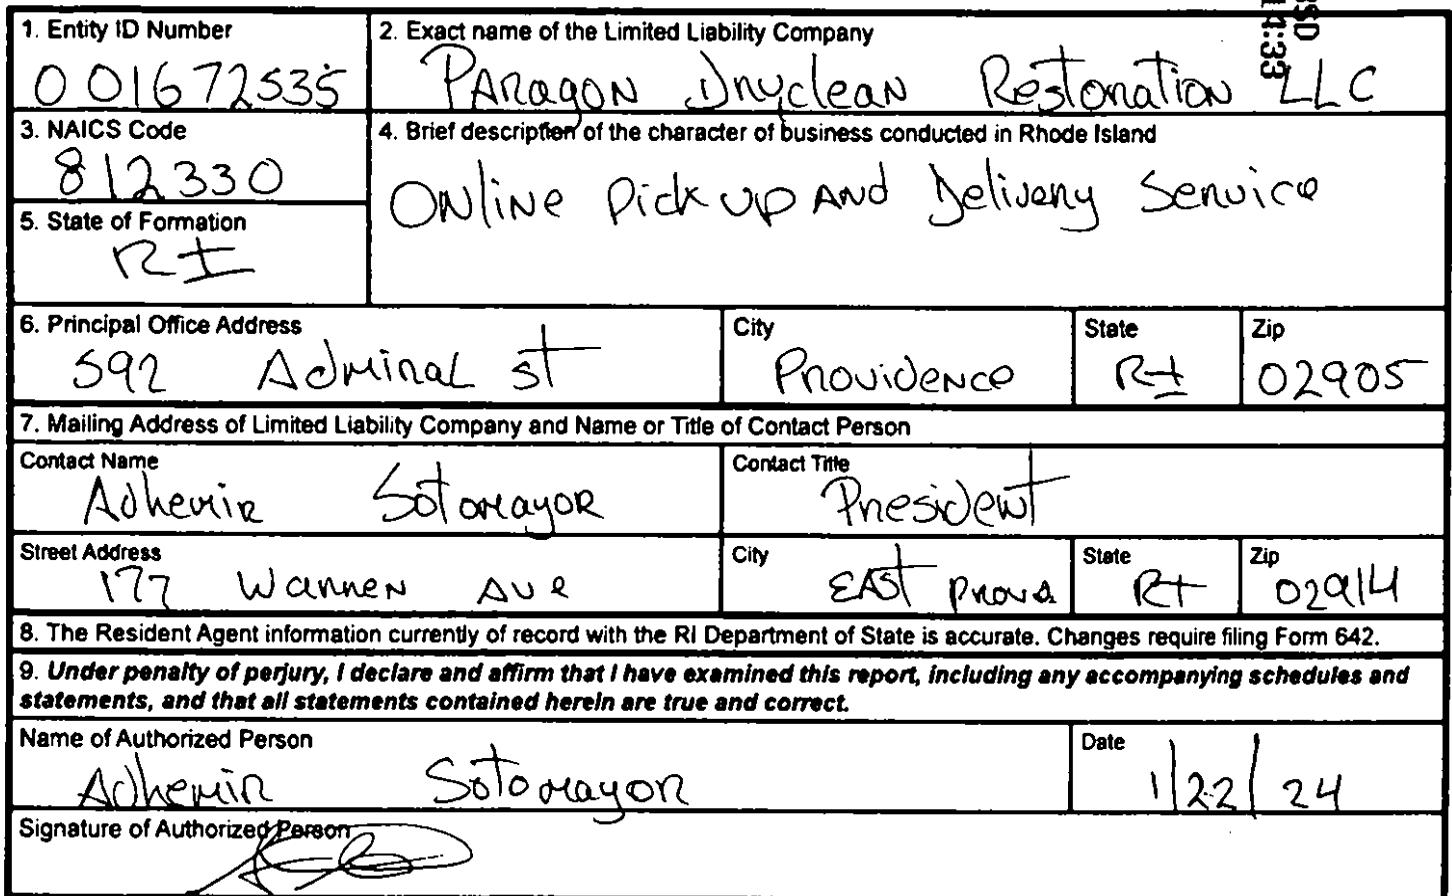 RSD
14:33
1. Entity ID Number
001672535
2. Exact name of the Limited Liability Company
Paragon Dryclean Restoration LLC
3. NAICS Code
812330
4. Brief description of the character of business conducted in Rhode Island
Online Pick up and Delivery Service
5. State of Formation
RI
6. Principal Office Address
592 Admiral st
City
Providence
State
RI
Zip
02905
7. Mailing Address of Limited Liability Company and Name or Title of Contact Person
Contact Name
Adhemir Sotomayor
Contact Title
President
Street Address
177 Warren Ave
City
East Prov
State
RI
Zip
02914
8. The Resident Agent information currently of record with the RI Department of State is accurate. Changes require filing Form 642.
9. Under penalty of perjury, I declare and affirm that I have examined this report, including any accompanying schedules and
statements, and that all statements contained herein are true and correct.
Name of Authorized Person
Adhemir Sotomayor
Date
1/22/24
Signature of Authorized Person